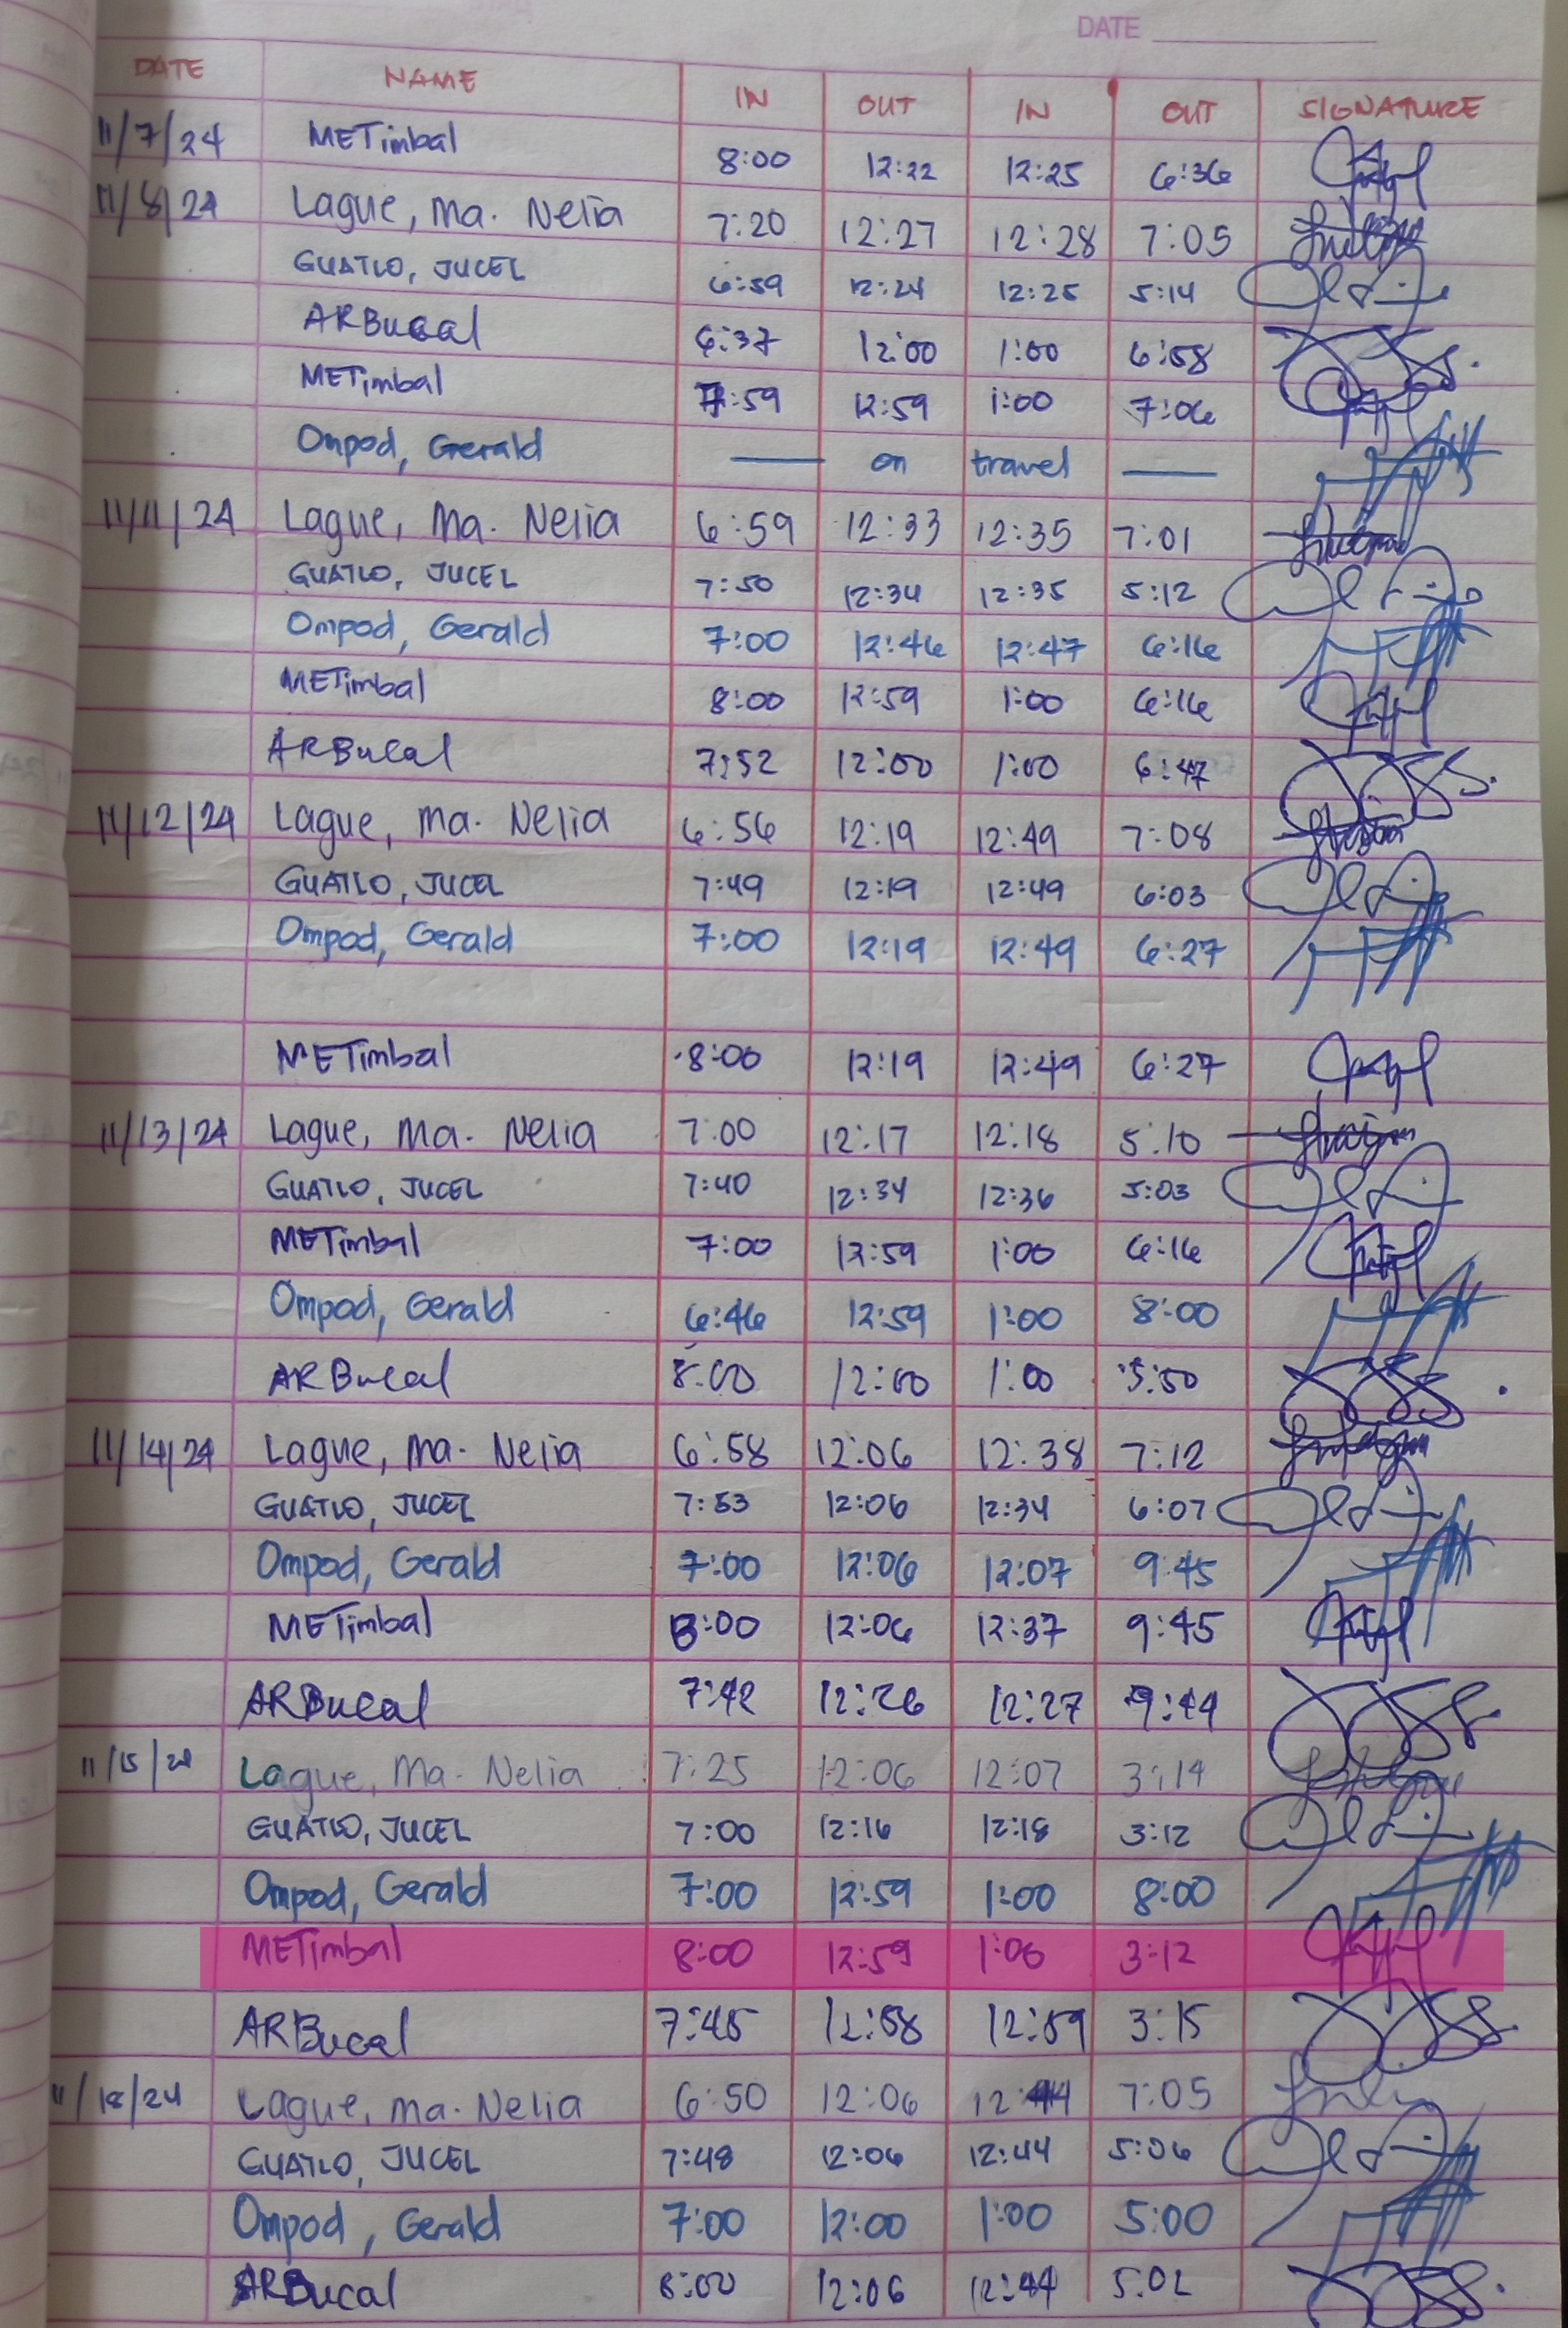 DATE
DATE NAME IN OUT IN OUT SIGNATURE
11/7/24 METimbal 8:00 12:22 12:25 6:36
11/8/24 Lague, Ma. Nelia 7:20 12:27 12:28 7:05
GUATLO, JUCEL 6:59 12:24 12:25 5:14
ARBucal 6:37 12:00 1:00 6:58
METimbal 7:59 12:59 1:00 7:06
Ompod, Gerald — on travel —
11/11/24 Lague, Ma. Nelia 6:59 12:33 12:35 7:01
GUATLO, JUCEL 7:50 12:34 12:35 5:12
Ompod, Gerald 7:00 12:46 12:47 6:16
METimbal 8:00 12:59 1:00 6:16
ARBucal 7:52 12:00 1:00 6:47
11/12/24 Lague, Ma. Nelia 6:56 12:19 12:49 7:08
GUATLO, JUCEL 7:49 12:19 12:49 6:03
Ompod, Gerald 7:00 12:19 12:49 6:27
METimbal 8:00 12:19 12:49 6:27
11/13/24 Lague, Ma. Nelia 7:00 12:17 12:18 5:10
GUATLO, JUCEL 7:40 12:34 12:36 5:03
METimbal 7:00 12:59 1:00 6:16
Ompod, Gerald 6:46 12:59 1:00 8:00
ARBucal 8:00 12:00 1:00 5:50
11/14/24 Lague, Ma. Nelia 6:58 12:06 12:38 7:12
GUATLO, JUCEL 7:53 12:06 12:34 6:07
Ompod, Gerald 7:00 12:06 12:07 9:45
METimbal 8:00 12:06 12:37 9:45
ARBucal 7:42 12:26 12:27 9:44
11/15/24 Lague, Ma. Nelia 7:25 12:06 12:07 3:14
GUATLO, JUCEL 7:00 12:16 12:18 3:12
Ompod, Gerald 7:00 12:59 1:00 8:00
METimbal 8:00 12:59 1:00 3:12
ARBucal 7:45 12:58 12:59 3:15
11/18/24 Lague, Ma. Nelia 6:50 12:06 12:44 7:05
GUATLO, JUCEL 7:48 12:06 12:44 5:06
Ompod, Gerald 7:00 12:00 1:00 5:00
ARBucal 8:00 12:06 12:44 5:02